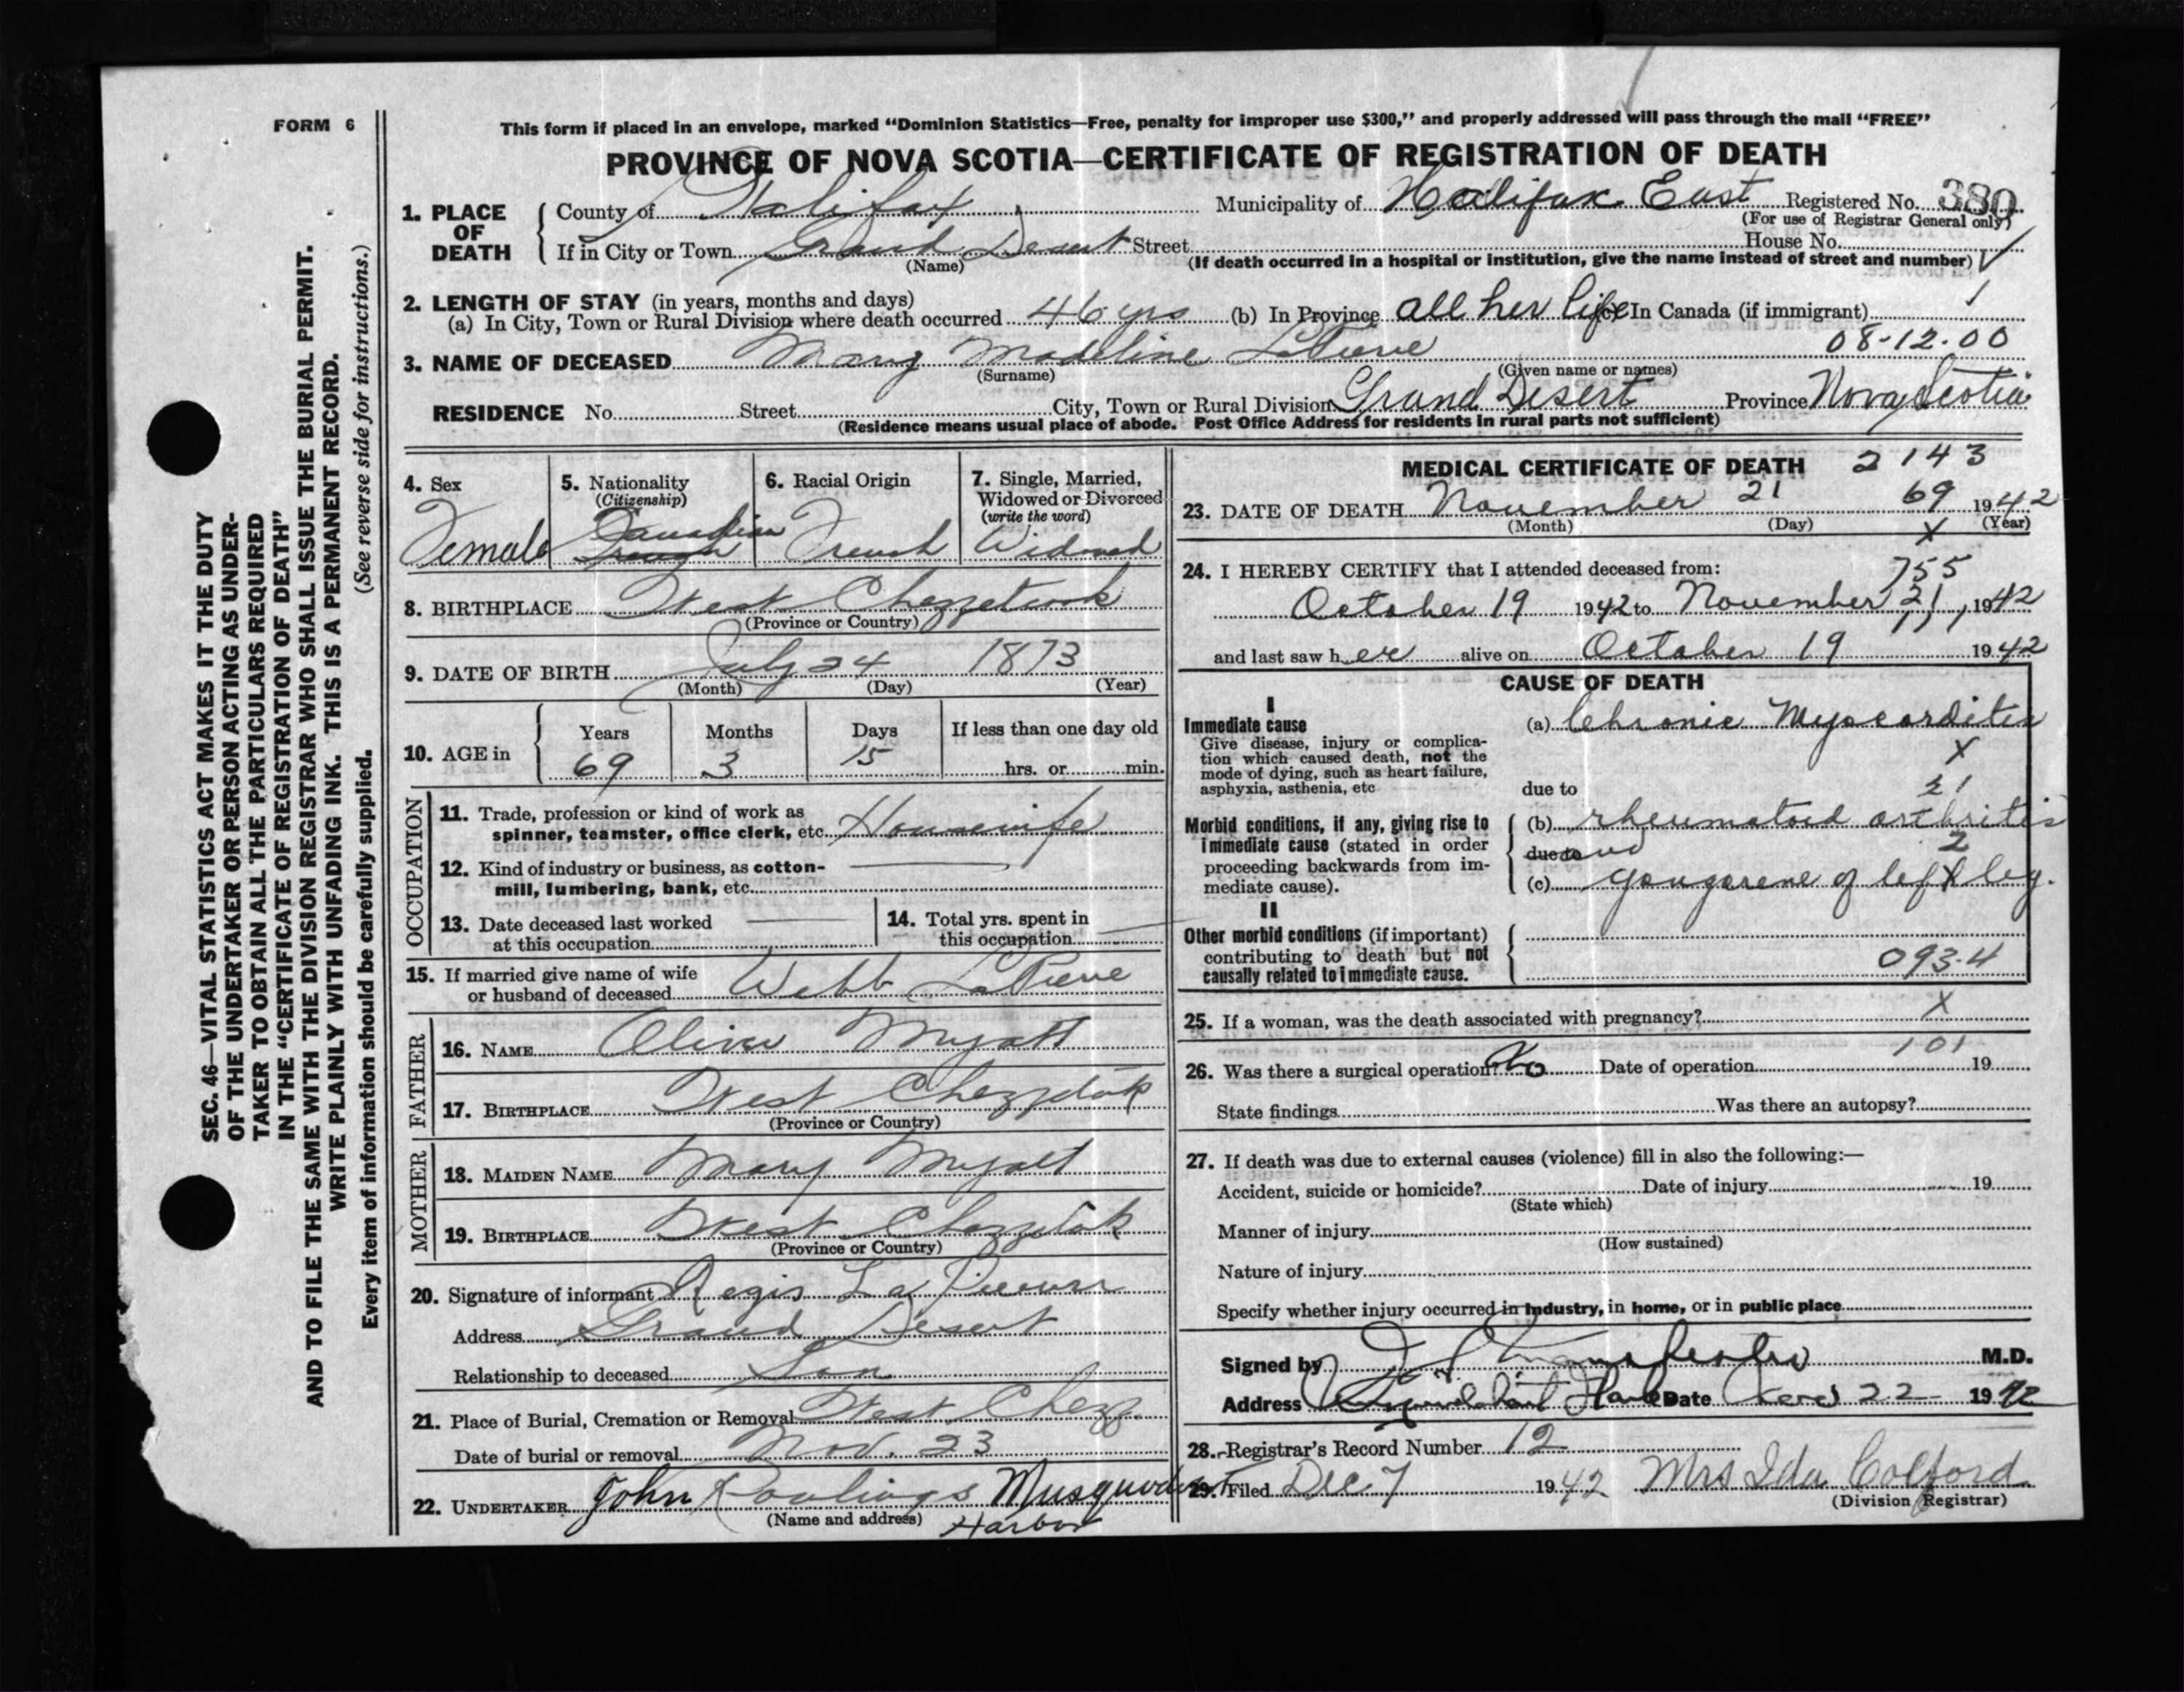 FORM 6
This form if placed in an envelope, marked "Dominion Statistics—Free, penalty for improper use $300," and properly addressed will pass through the mail "FREE"
PROVINCE OF NOVA SCOTIA—CERTIFICATE OF REGISTRATION OF DEATH
1. PLACE OF DEATH
County of Halifax Municipality of Halifax East Registered No. 380
(For use of Registrar General only)
If in City or Town Grand Desert Street House No.
(Name) (If death occurred in a hospital or institution, give the name instead of street and number)
2. LENGTH OF STAY (in years, months and days)
(a) In City, Town or Rural Division where death occurred 46 yrs (b) In Province all her life In Canada (if immigrant)
08-12.00
3. NAME OF DECEASED Mary Madeline LaPierre
(Surname) (Given name or names)
RESIDENCE No. Street City, Town or Rural Division Grand Desert Province Nova Scotia
(Residence means usual place of abode. Post Office Address for residents in rural parts not sufficient)
4. Sex
Female
5. Nationality
(Citizenship)
Canadian
French
6. Racial Origin
French
7. Single, Married,
Widowed or Divorced
(write the word)
Widowed
8. BIRTHPLACE West Chezzetcook
(Province or Country)
9. DATE OF BIRTH July 24 1873
(Month) (Day) (Year)
10. AGE in
Years Months Days If less than one day old
69 3 15 hrs. or min.
OCCUPATION
11. Trade, profession or kind of work as
spinner, teamster, office clerk, etc. Housewife
12. Kind of industry or business, as cotton-
mill, lumbering, bank, etc.
13. Date deceased last worked
at this occupation
14. Total yrs. spent in
this occupation
15. If married give name of wife
or husband of deceased Webb LaPierre
FATHER
16. NAME Oliver Myatt
17. BIRTHPLACE West Chezzetcook
(Province or Country)
MOTHER
18. MAIDEN NAME Mary Myatt
19. BIRTHPLACE West Chezzetcook
(Province or Country)
20. Signature of informant Regis La
Address Grand Desert
Relationship to deceased Son
21. Place of Burial, Cremation or Removal West Chezz.
Date of burial or removal Nov. 23
22. UNDERTAKER John Rowlings Musquodoboit
(Name and address) Harbor
MEDICAL CERTIFICATE OF DEATH 2143
23. DATE OF DEATH November 21 69 1942
(Month) (Day) X (Year)
24. I HEREBY CERTIFY that I attended deceased from: 755
October 19 1942 to November 21, 1942
and last saw her alive on October 19 1942
CAUSE OF DEATH
I
Immediate cause
Give disease, injury or complica-
tion which caused death, not the
mode of dying, such as heart failure,
asphyxia, asthenia, etc
(a) Chronic Myocarditis
X
due to 21
Morbid conditions, if any, giving rise to
immediate cause (stated in order
proceeding backwards from im-
mediate cause).
(b) rheumatoid arthritis
due to and 2
(c) gangarene of left leg.
II
Other morbid conditions (if important)
contributing to death but not
causally related to immediate cause.
093.4
25. If a woman, was the death associated with pregnancy? X
101
26. Was there a surgical operation? No Date of operation 19
State findings Was there an autopsy?
27. If death was due to external causes (violence) fill in also the following:—
Accident, suicide or homicide? Date of injury 19
(State which)
Manner of injury
(How sustained)
Nature of injury
Specify whether injury occurred in industry, in home, or in public place
Signed by M.D.
Address Date 22 1942
28. Registrar's Record Number 12
29. Filed Dec 7 1942 Mrs Ida Colford
(Division Registrar)
SEC. 46—VITAL STATISTICS ACT MAKES IT THE DUTY
OF THE UNDERTAKER OR PERSON ACTING AS UNDER-
TAKER TO OBTAIN ALL THE PARTICULARS REQUIRED
IN THE "CERTIFICATE OF REGISTRATION OF DEATH"
AND TO FILE THE SAME WITH THE DIVISION REGISTRAR WHO SHALL ISSUE THE BURIAL PERMIT.
WRITE PLAINLY WITH UNFADING INK. THIS IS A PERMANENT RECORD.
Every item of information should be carefully supplied. (See reverse side for instructions.)